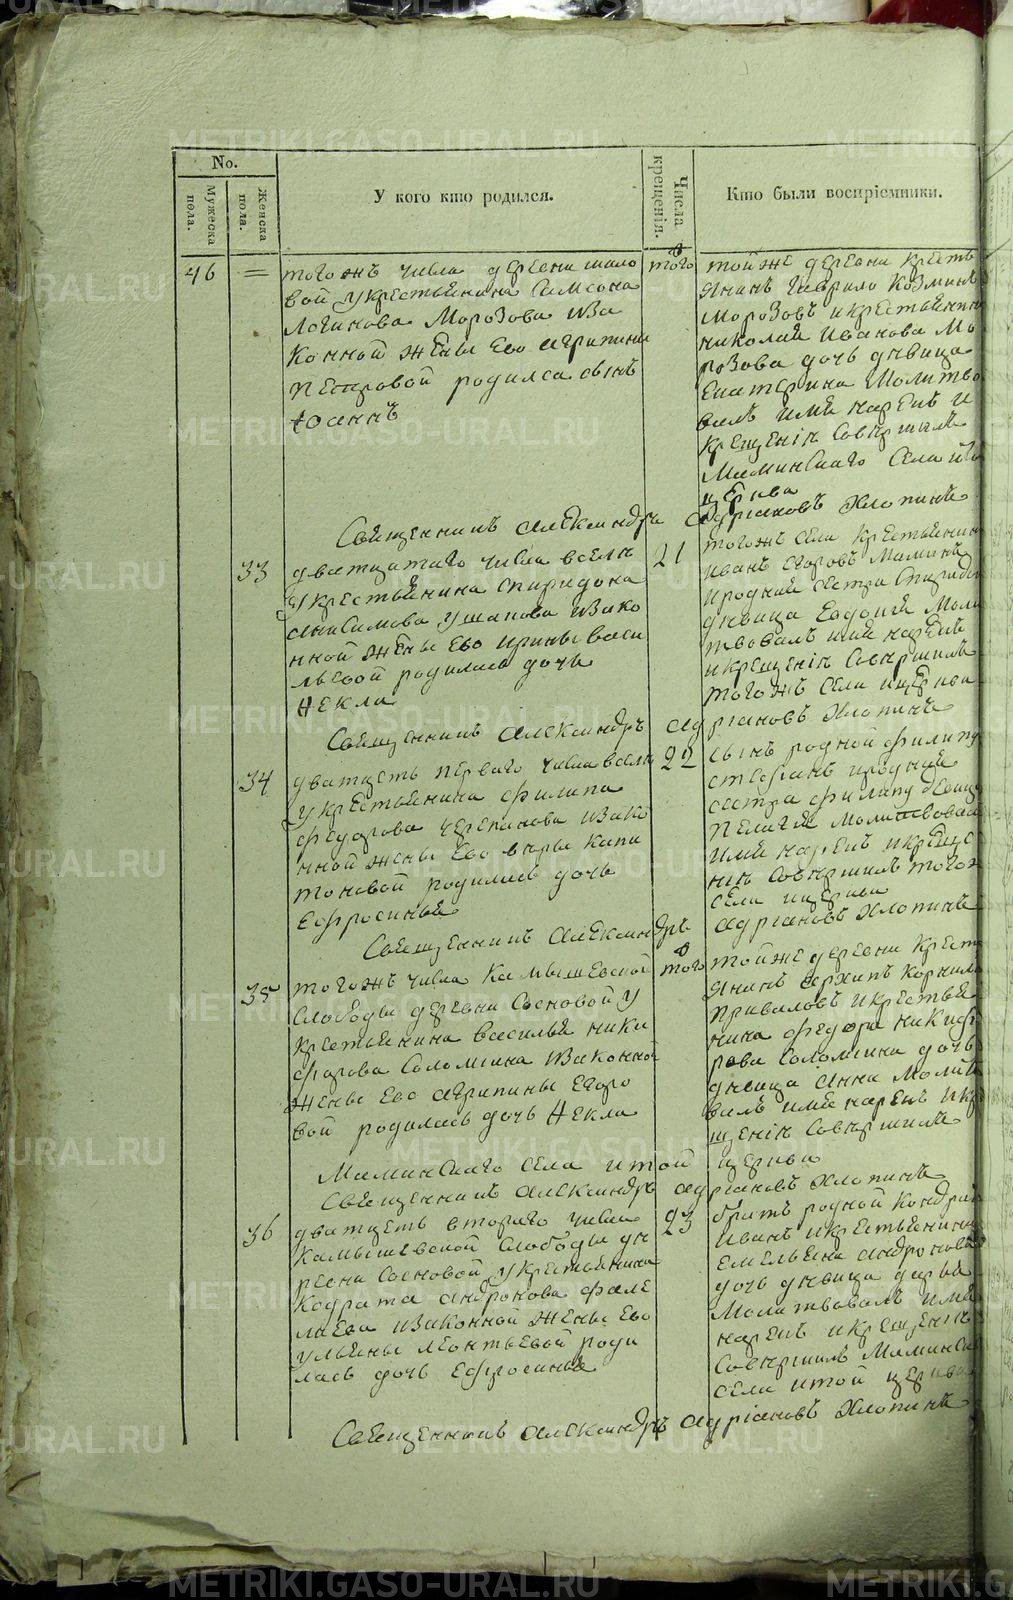 No.
Мужеска пола.
Женска пола.
У кого кто родился.
Числа крещенія.
Кто были воспріемники.
46 =
тогожъ числа деревни мало
вой укрестьянина Самсона
Логинова Морозова иза
конной жены Ево Агрипины
Петровой родился сынъ
Іоаннъ
того
тойже деревни кресть
янинъ Гаврило Козминъ
Морозовъ икрестьянина
николая Иванова Мо
розова дочь дѣвица
Екатерина Молитво
валъ имя нарекъ и
крещеніе Совершилъ
Маминскаго Села той
церкви
Священникъ Александръ Адріановъ Хлопинъ
33
дватцатаго числа вселе
укрестьянина Спиридона
Анисимова Ушакова изако
нной жены Ево Ирины васи
льевой родилась дочь
Фекла
21
тогожъ Села крестьянинъ
иванъ Егоровъ Маминъ
и родная сестра Спиридона
дѣвица Евдокия Моли
твовалъ имя нарекъ
икрещеніе Совершилъ
тогожъ Села ицеркви
Священникъ Александръ Адріановъ Хлопинъ
34
дватцеть перваго числа вселе
укрестьянина Филипа
Федорова черепанова изако
нной жены Ево веры капи
тоновой родилась дочь
Ефросинья
22
сынъ родной филипу
стефанъ иродная
сестра филипу дѣвица
Пелагея Молитвовалъ
имя нарекъ икреще
ніе Совершилъ тогожъ
Села ицеркви
Священникъ Александръ Адріановъ Хлопинъ
35
тогожъ числа Камышевской
слободы деревни Сосновой у
крестьянина василья ники
форова Соломеина изаконной
жены Ево Агрипины Егоро
вой родилась дочь Фекла
того
тойже деревни крест
янинъ архипъ Корнило
Приваловъ икрестья
нина федора никифо
рова Соломеина дочь
дѣвица Анна Молитво
валъ имя нарекъ икре
щеніе Совершилъ
Маминскаго Села итой церкви
Священникъ Александръ Адріановъ Хлопинъ
36
дватцеть втораго числа
Камышевской Слободы де
ревни Сосновой укрестьянина
Кодрата Андронова фале
лѣева изаконной жены Ево
ульяны леонтьевой роди
лась дочь Ефросинья
23
братъ родной Кондрату
иванъ икрестьянина
Емельяна андронова
дочь дѣвица дарья
Молитвовалъ имя
нарекъ икрещеніе
Совершилъ Маминскаго
Села итой церкви
Священникъ Александръ Адріановъ Хлопинъ
METRIKI.GASO-URAL.RU